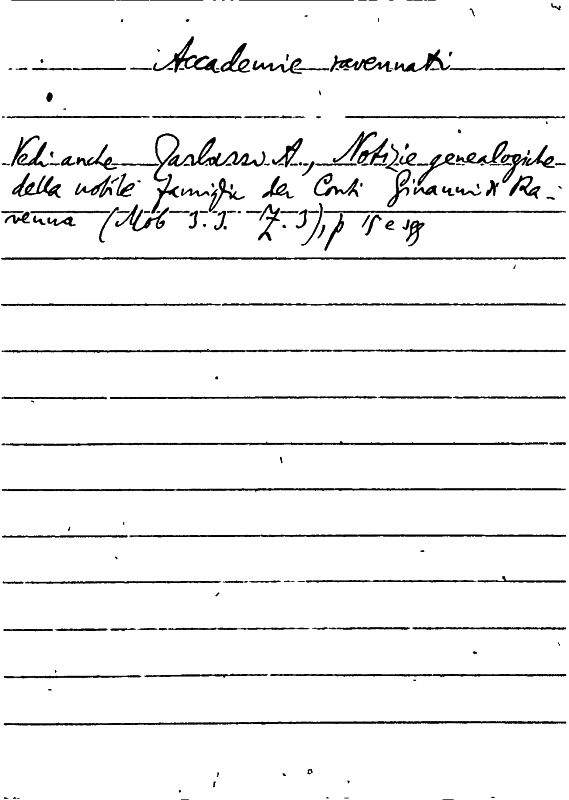 Accademie ravennati
Vedi anche Tarlazzi A., Notizie genealogiche
della nobile famiglia dei Conti Ginanni di Ra-
venna (Mob 3.3. Z.3), p 15 e sgg